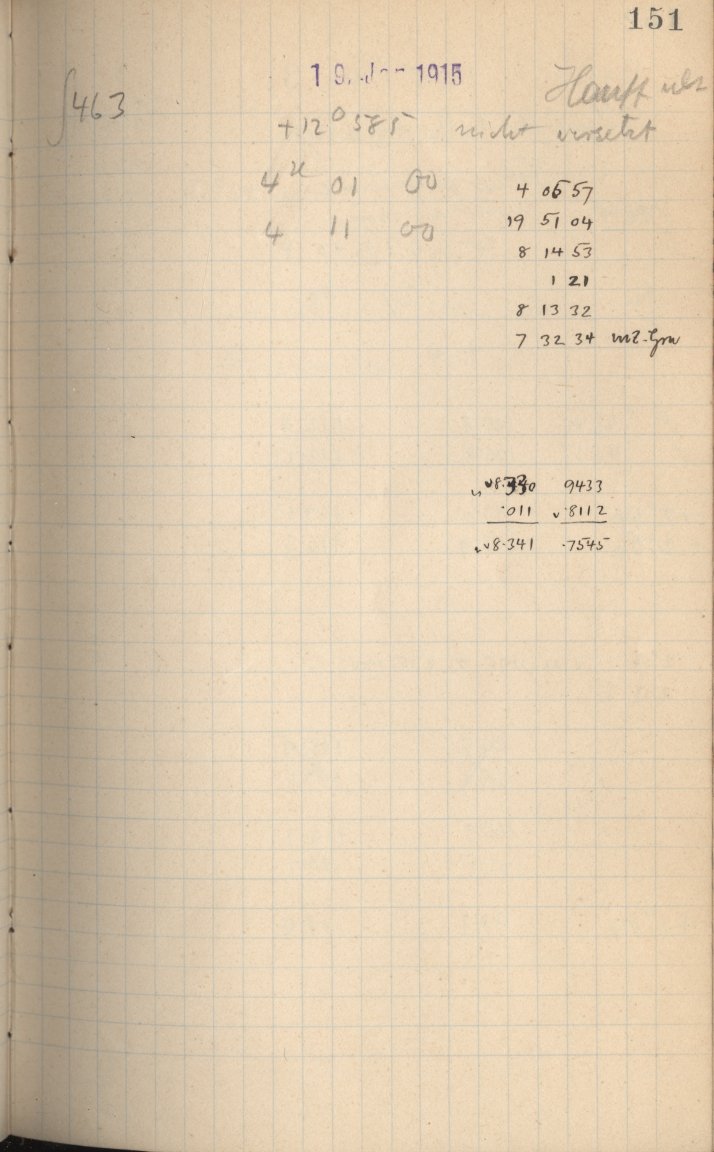 151
19. Jan 1915
Hauff
463
+12° 585 nicht versetzt
4 01 00
4 11 00
4 06 57
19 51 04
8 14 53
1 21
8 13 32
7 32 34 mZ.Grw
8.330 9433
.011 .8112
8.341 .7545